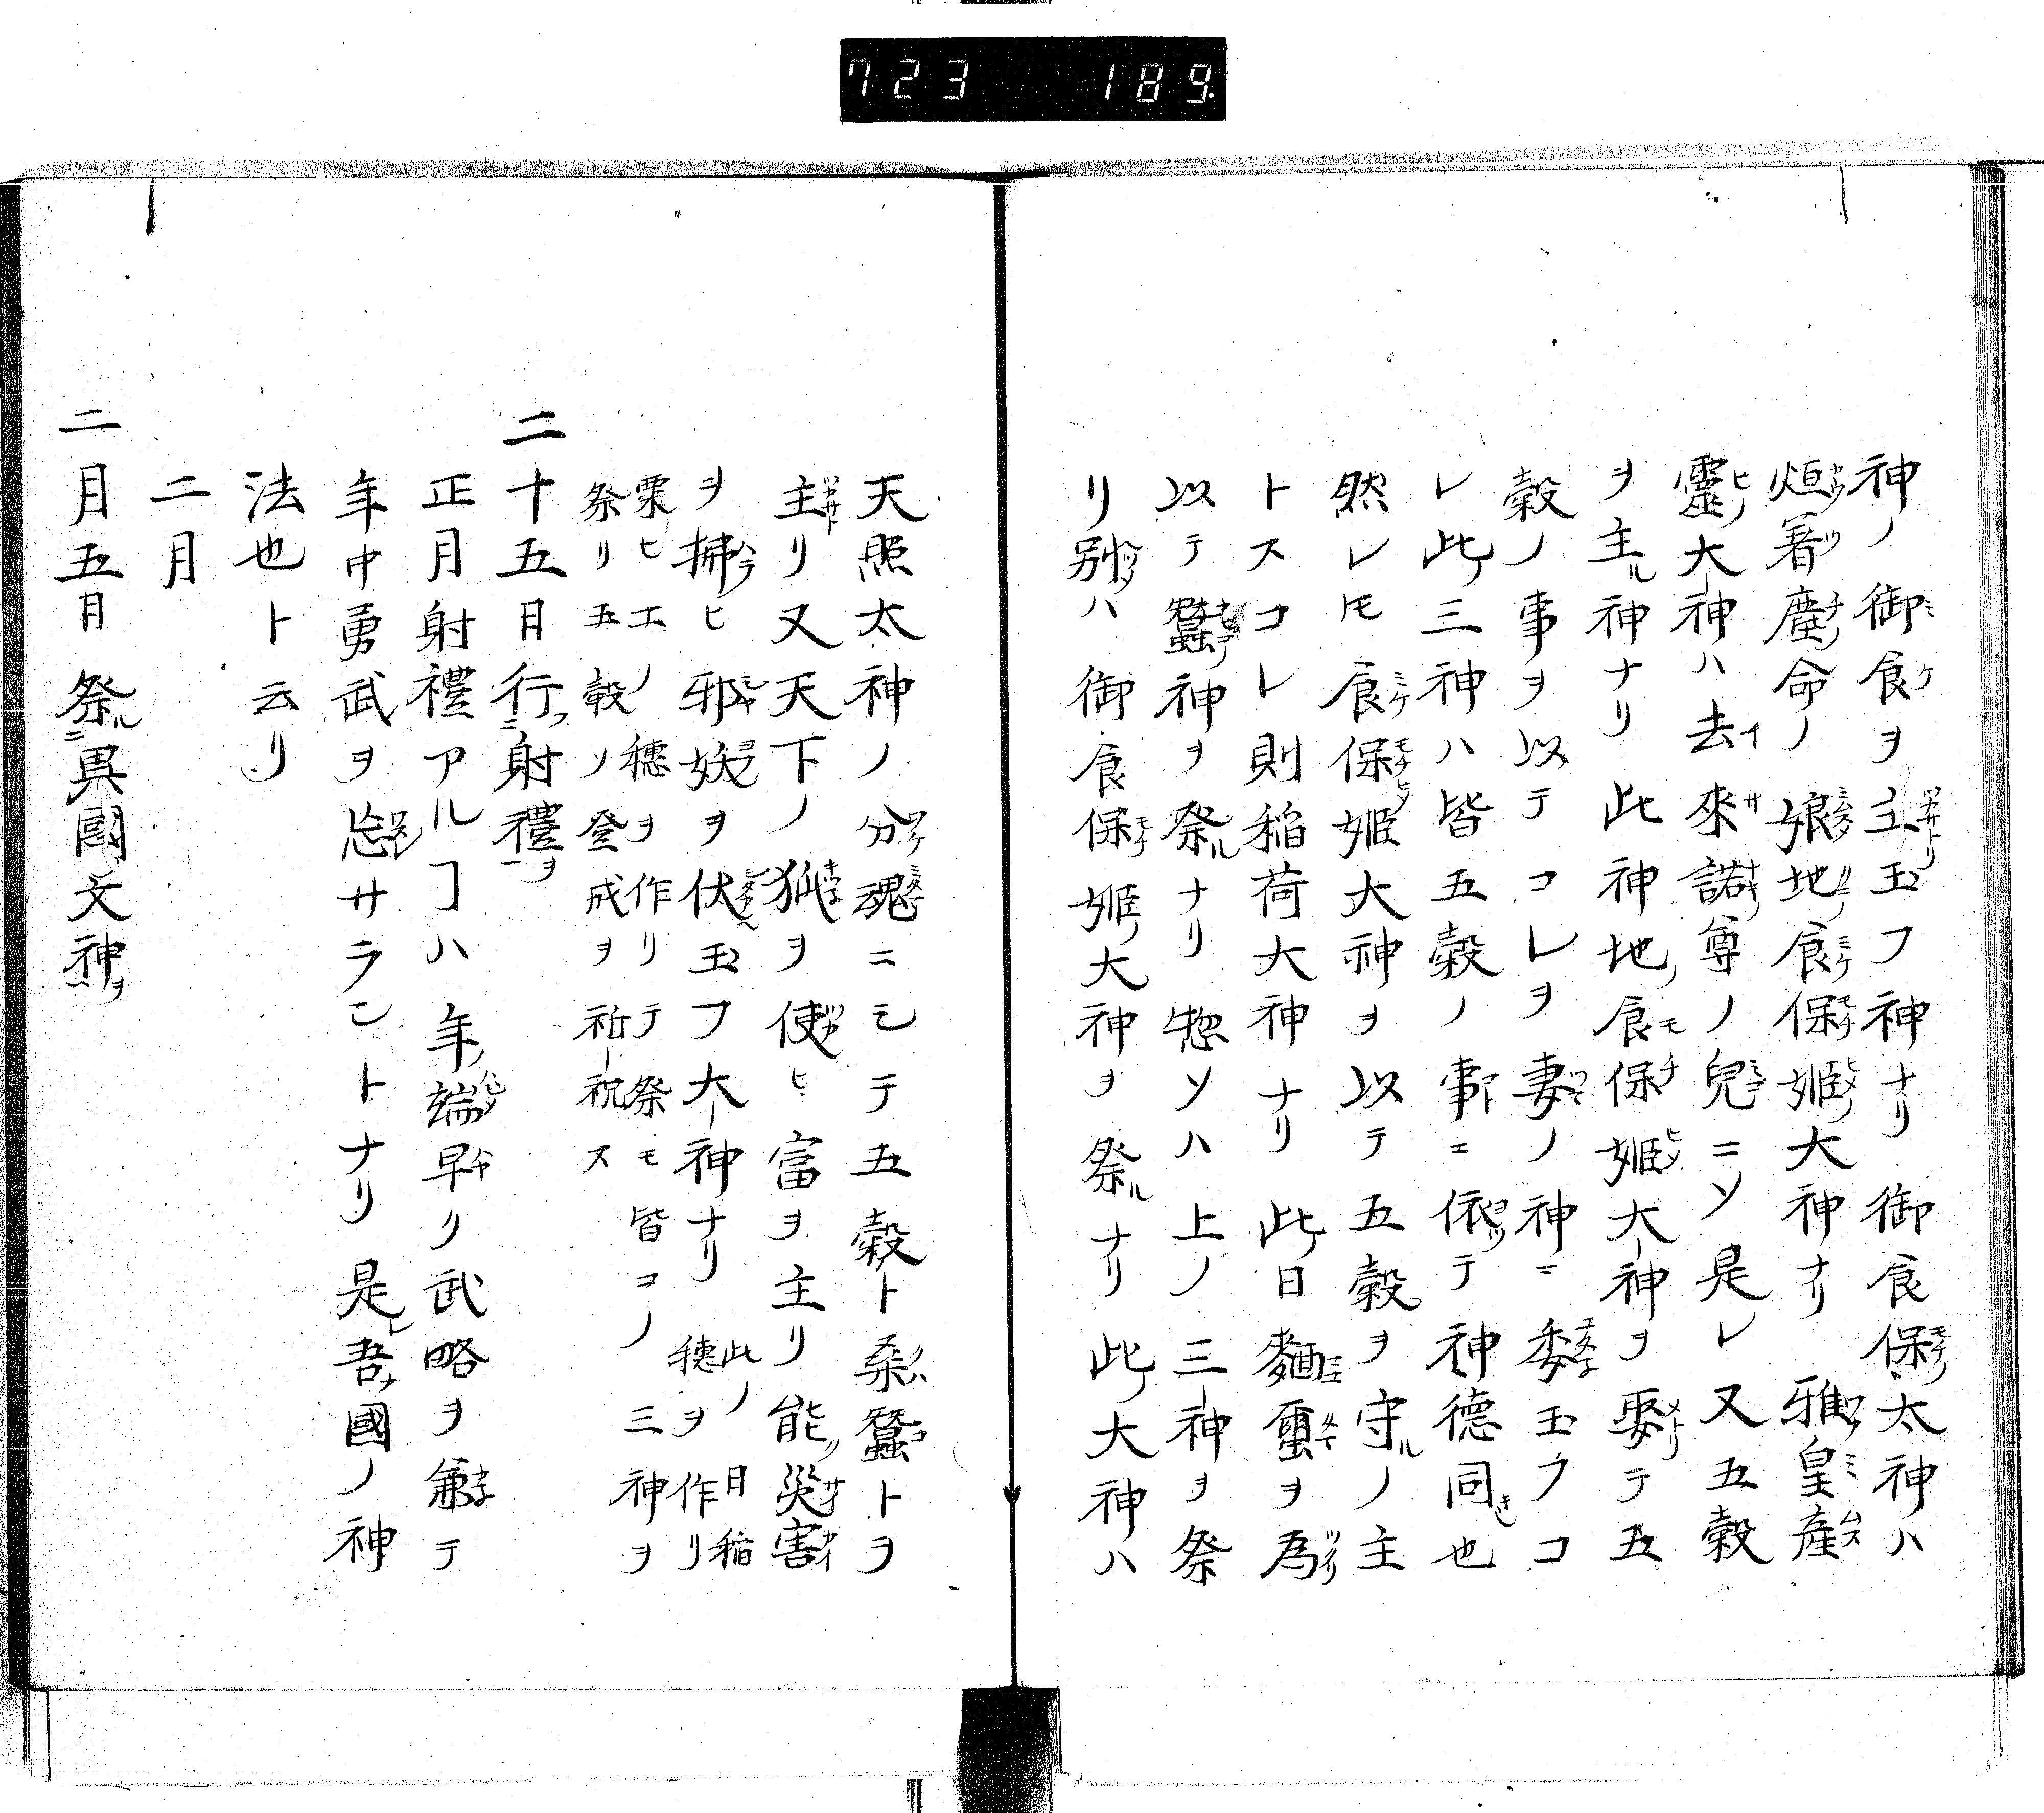 723 189.
神ノ御食ヲ主玉フ神ナリ御食保太神ハ
烜著塵命ノ娘地食保姫大神ナリ雅皇産
靈大神ハ去來諾尊ノ兒ニソ是レ又五穀
ヲ主ル神ナリ此神地食保姫大神ヲ娶テ五
穀ノ事ヲ以テコレヲ妻ノ神ニ委玉フコ
レ此三神ハ皆五穀ノ事ニ依テ神德同也
然レ𪜈食保姫大神ヲ以テ五穀ヲ守ルノ主
トスコレ則稲荷大神ナリ此日麺蠒ヲ為
以テ蠶神ヲ祭ルナリ惣ソハ上ノ三神ヲ祭
リ別ハ御食保姫大神ヲ祭ルナリ此大神ハ
天照太神ノ分魂ニ乄テ五穀ト桒蠶トヲ
主リ又天下ノ狐ヲ使ヒ富ヲ主リ能災害
ヲ拂ヒ邪妖ヲ伏玉フ大神ナリ此ノ日稲穗ヲ作リ
粟ヒエノ穗ヲ作リテ祭モ皆コノ三神ヲ
祭リ五穀ノ登成ヲ祈祝ス
二十五日行射禮ヲ
正月射禮アルヿハ年端早ク武略ヲ兼テ
年中勇武ヲ忘サラントナリ是吾國ノ神
法也ト云リ
二月
二月五日祭異國文神ヲ